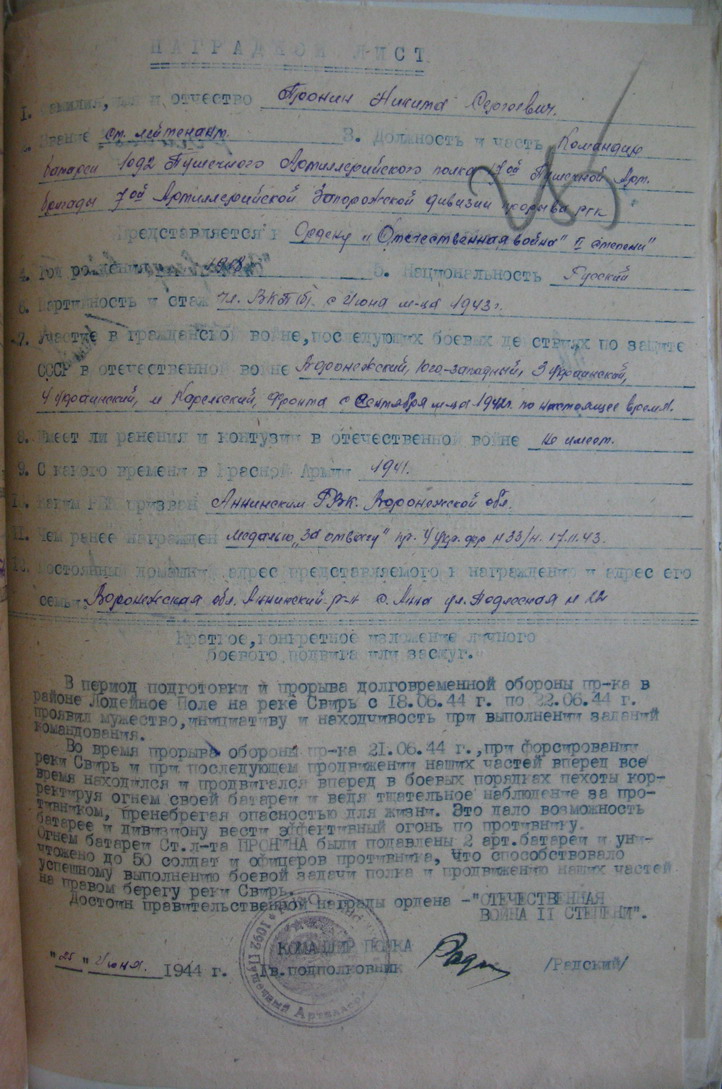 НАГРАДНОЙ ЛИСТ
1. Фамилия, имя и отчество Пронин Никита Сергеевич.
2. Звание ст. лейтенант. 3. Должность и часть Командир
батареи 1092 Пушечного Артиллерийского полка 17ой Пушечной Арт.
бригады 7ой Артиллерийской Запорожской дивизии прорыва РГК
Представляется к Ордену „Отечественная война" II степени"
4. Год рождения 5. Национальность Русский
6. Партийность и стаж Чл. ВКП(б) с Июна м-ца 1943г.
7. Участие в гражданской войне, последующих боевых действиях по защите
СССР в отечественной войне Воронежский, Юго-западный, 3 Украинский,
4 Украинский, и Карельский, Фронта с Сентября м-ца 1942г. по настоящее время.
8. Имеет ли ранения и контузии в отечественной войне Не имеет.
9. С какого времени в Красной Армии 1941.
10. Каким РВК призван Аннинским РВК. Воронежской обл.
11. Чем ранее награжден Медалью „За отвагу" пр. 4 Укр. фр N 33/н. 17.11.43.
12. Постоянный домашний адрес представляемого к награждению и адрес его
семьи Воронежская обл. Аннинский р-н с. Анна ул. Подлесная N 22
Краткое, конкретное изложение личного
боевого подвига или заслуг.
В период подготовки и прорыва долговременной обороны пр-ка в
районе Лодейное Поле на реке Свирь с 18.06.44 г. по 22.06.44 г.
проявил мужество, инициативу и находчивость при выполнении заданий
командования.
Во время прорыва обороны пр-ка 21.06.44 г., при форсировании
реки Свирь и при последующем продвижении наших частей вперед все
время находился и продвигался вперед в боевых порядках пехоты кор-
ректируя огнем своей батареи и ведя тщательное наблюдение за про-
тивником, пренебрегая опасностью для жизни. Это дало возможность
батарее и дивизиону вести эффективный огонь по противнику.
Огнем батареи Ст. л-та ПРОНИНА были подавлены 2 арт. батареи и уни-
чтожено до 50 солдат и офицеров противника, что способствовало
успешному выполнению боевой задачи полка и продвижению наших частей
на правом берегу реки Свирь.
Достоин правительственной награды ордена -"ОТЕЧЕСТВЕННАЯ
ВОЙНА II СТЕПЕНИ".
КОМАНДИР ПОЛКА
"25" Июня. 1944 г. Гв. подполковник /Радский/